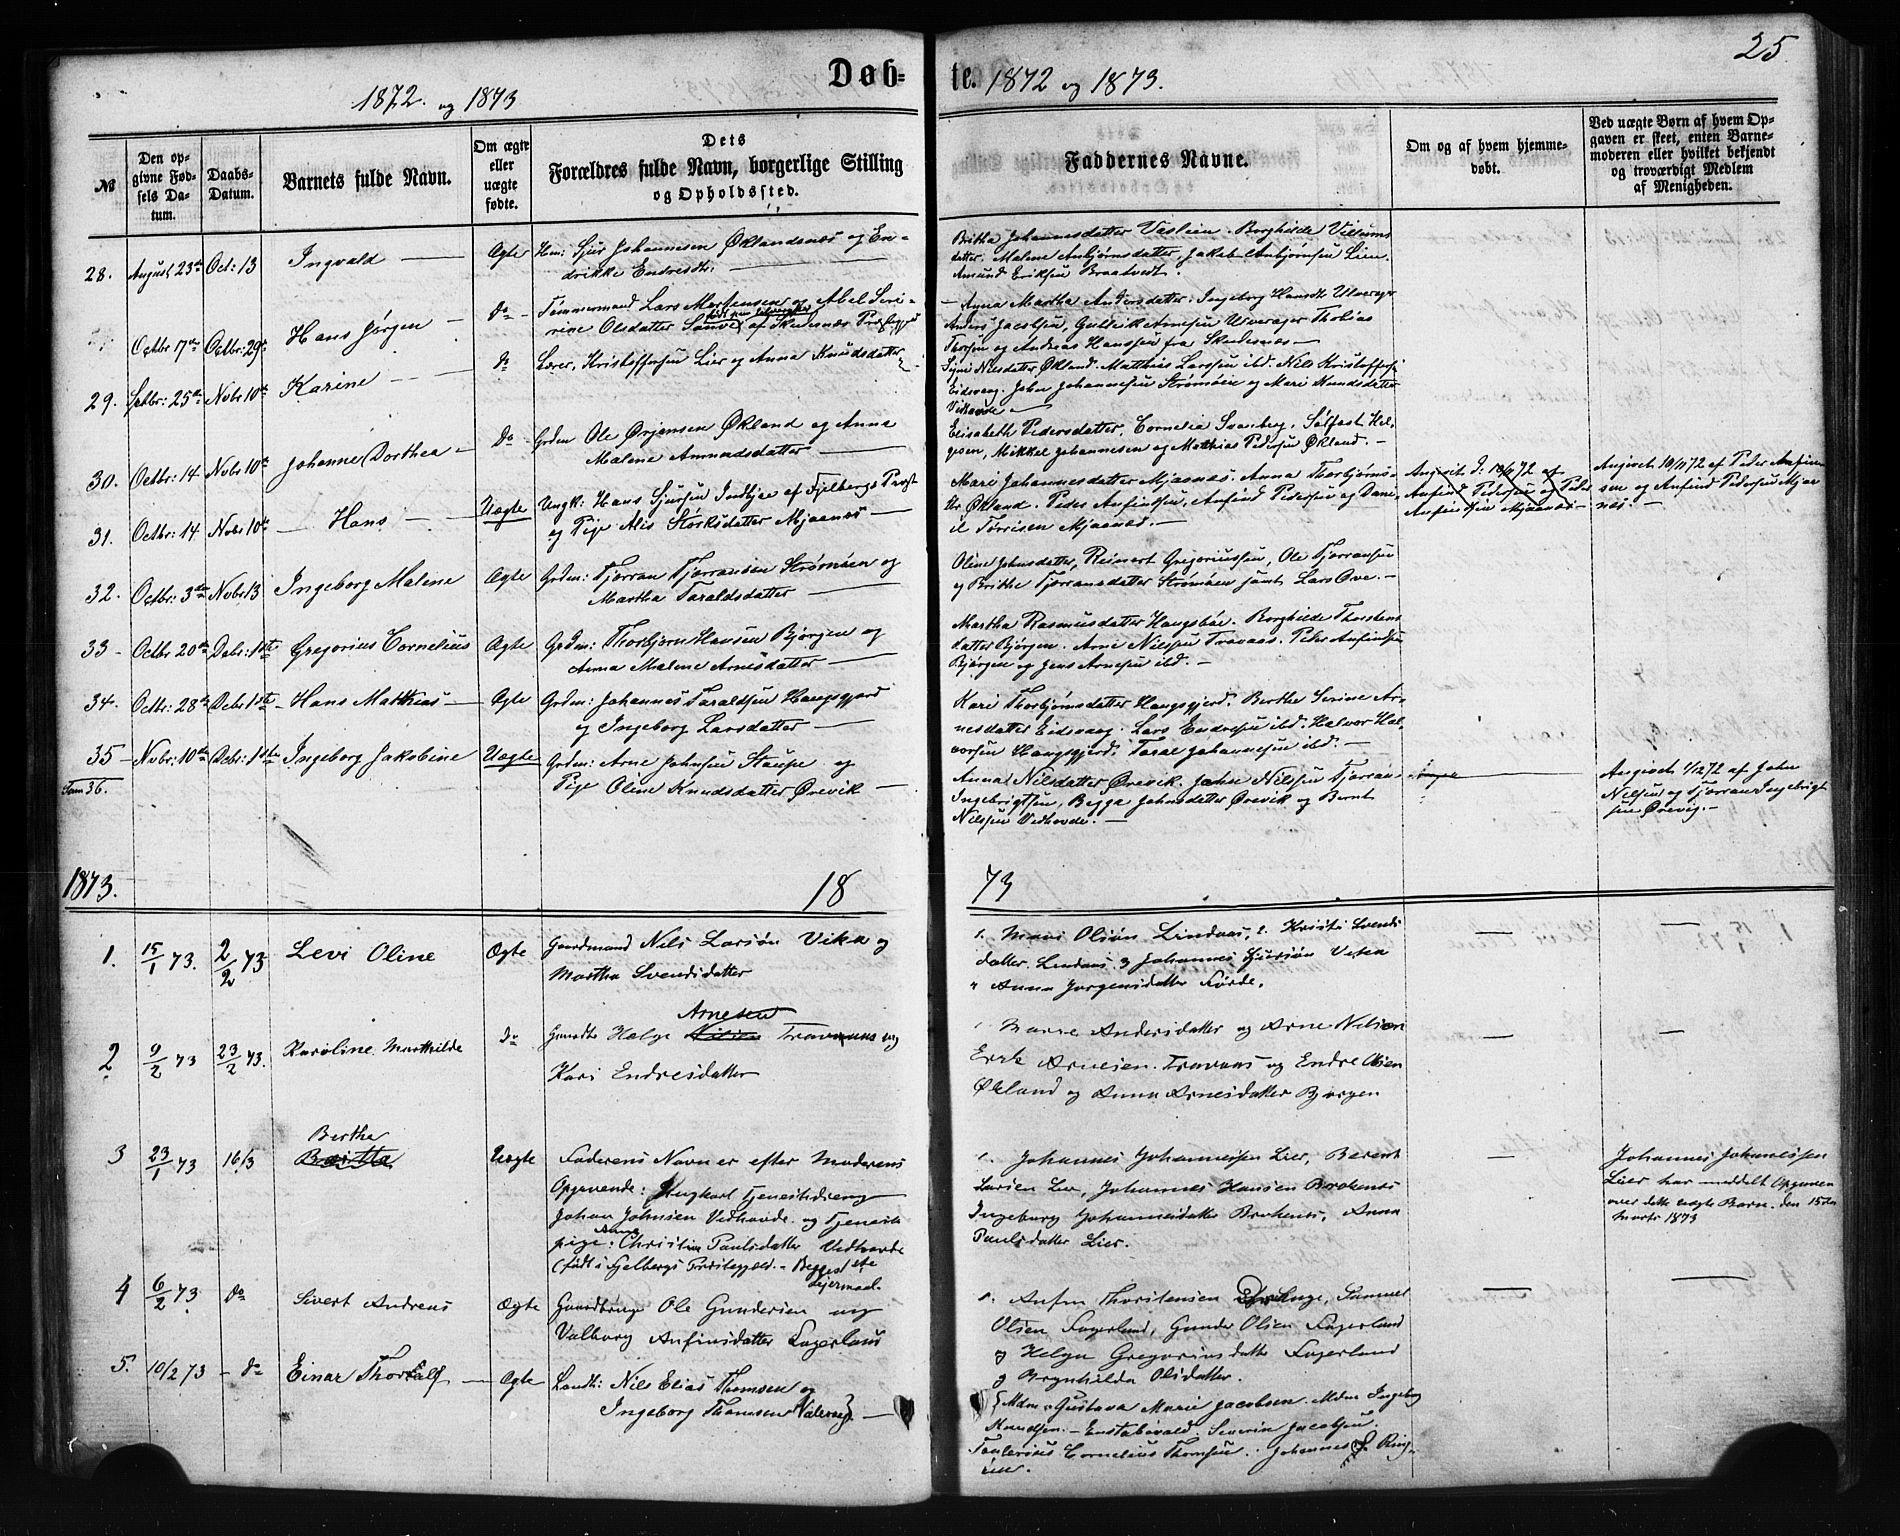 25
Døb-
te. 1872 og 1873.
1872. og 1873
№
Den op-
givne Fød-
sels Da-
tum.
Daabs-
Datum.
Barnets fulde Navn.
Om ægte
eller
uægte
fødte.
Dets
Forældres fulde Navn, borgerlige Stilling
og Opholdssted.
Faddernes Navne.
Om og af hvem hjemme-
døbt.
Ved uægte Børn af hvem Op-
gaven er skeet, enten Barne-
moderen eller hvilket bekjendt
og troværdigt Medlem
af Menigheden.
28. August 23de Oct: 13 Ingvald Ægte Hm: Sjur Johannesen Øklandsnæs og En-
drikke Endresdtr:
Britha Johannesdatter Vaslein. Borghilde Villums
datter. Malene Anbjørnsdatter Jakob Anbjørnsen Lien.
Amund Eriksen Braatvedt.
Octbr 17de Octbr: 29de Hans Jørgen Do Tømmermand Lars Mortensen og Abel Seri-
rine Olsdatter af Skudesnæs Præstegjæld
Anna Martha Andersdatter. Ingeborg Hansdtr Utvaager
Anders Jacobsen, Gullik Arnesen Utvaager Thobias
Thorsen og Andreas Hanssen fra Skudesnæs
29. Septbr: 25de Novbr 10de Karine Do Lærer, Kristoffersen Lier og Anna Knudsdatter
Nilsdatter Økland. Matthias Larssen ibd. Nils Kristoffersen
Eidsvaag. John Johannesen Strømøen og Mari Knudsdatter
Vidhovde
30. Octbr: 14 Novbr 10de Johanne Dorthea Do Grdm Ole Ørjansen Økland og Anna
Malene Amundsdatter
Elisabeth Pedersdatter, Cornelia Svanberg, Salfast Hel-
gesen, Mikkel Johannesen og Matthias Pedersen Økland.
31. Octbr: 14 Novbr 10de Hans Uægte Ungk: Hans Sjursen Indbjo af Fjelbergs Præst
og Pige Alis Størksdatter Mjaanæs
Mari Johannesdatter Mjaanæs. Anna Thorbjørns-
dtr. Økland. Peder Anfindsen, Anfind Pedersen og Dani-
el Tørrisen Mjaanæs.
Angivet d: 10/11 72 af
Anfind Pedersen og Peder
Anfindsen Mjaanæs
Angivet 10/11 72 af Peder Anfind-
sen og Anfind Pedersen Mjaa-
næs.
32. Octbr: 3die Novbr 3 Ingeborg Maline Ægte Grdm: Tjorran Tjorransen Strømøen og
Martha Taraldsdatter
Oline Johnsdatter, Reinert Gregoriussen, Ole Tjorransen
og Brithe Tjorransdatter Strømøen samt Lars Ove.
33 Octbr 20de Debr: 1ste Gregorius Cornelius Ægte Grdm: Thorbjørn Hansen Bjørgen og
Anna Malene Arnesdatter
Martha Rasmusdatter Haugsbøe. Borghilde Thorstens
datter Bjørgen. Arne Nilsen Travaas. Peder Anfindsen
Bjørgen og Jens Arnesen ibd.
34. Octbr: 28de Debr 1ste Hans Matthias Ægte Grdm: Johannes Taraldsen Haugsgjerd
og Ingeborg Larsdatter
Kari Thorbjørnsdatter Haugsgjerd. Berthe Serine Ar-
nesdatter Eidsvaag. Lars Endresen ibd. Halvor Hal-
vorsen Haugsgjerd. Taral Johannesen ibd.
35 Novbr: 10de Debr: 1ste Ingeborg Jakobine Uægte Grdm: Arne Johnsen Staupe og
Pige Oline Knudsdatter Ørevik
Anna Nilsdatter Ørevik. Jakse Nilsen Tjorran
Ingebrigtsen, Begga Johnsdatter Ørevik og Bernt
Nilssen Vidhovde.
Angivet 1/12 72 af John
Nilsen og Tjorran Ingebrigt
sen Ørevig.
Sum 36.
1873. 18 73
1. 15/1 73. 2/2 73 Levi Oline Ægte Gaardmand Nils Larsøn Vika og
Martha Svendsdatter
1. Mons Olsøn Lindaas, 2. Kristi Svends
datter. Lindaas. 3 Johannes Sjursøn Vika
4 Anna Jørgensdatter Førde.
2 9/2 73 23/2 73. Karoline Marthilde Do Gaardbr Helge Nilsen Arnesen Travaas og
Kari Endresdatter
1. Marie Andersdatter og Arne Nilsen
Erik Arnesen. Travaas og Endre Olsen
Økland og Anna Arnesdatter Bjørgen
3 23/1 73 16/3 Britta Bertha Uægte Faderens Navn er efter Moderens
Opgivende: Ungkarl Tjenestedreng
Johan Johnsen Vidhovde og Tjeneste
pige: Anna Christine Paulsdatter Vidhovde
(født i Fjelbergs Præstegjæld. - Begges 1ste
Leiermaal.
1. Johannes Johannessen Lier, Berent
Larsen Lier, Johannes Hansen Brekenes
Ingeborg Johannesdatter Brekenes, Anna
Paulsdatter Lier.
Johannes Johannessen
Lier har meddelt Opgaven
over dette uægte Barn. den 15de
Marts 1873
4 6/2 73 Do Sivert Andreas Ægte Gaardbruger Ole Gundersen og
Valborg Anfinsdatter Fagerland
1. Anfin Thorstensen, Samuel
Olsen Fagerland, Gunder Olsen Fagerland
og Helga Gregoriusdatter Fagerland
og Brynhilda Olsdatter.
5. 10/2 73 Do Einar Thoralf Ægte Landh: Nils Elias Thomsen og
Ingeborg Thomsen
Mdm Gustava Marie Jacobsen. Mdm Ingeborg
Knudsen. Severin Jacobsen.
Cornelius Thomsen. Johannes Ring-